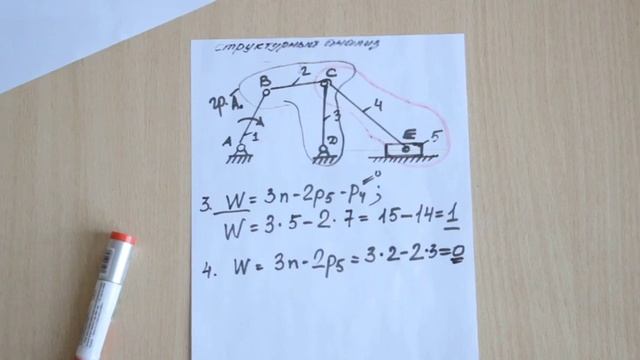 структурный анализ
B 2 C
гр. A.
A 1 3 4 E 5
D
3. W = 3n - 2p₅ - p₄ = 0 ;
W = 3 · 5 - 2 · 7 = 15 - 14 = 1
4. W = 3n - 2p₅ = 3 · 2 - 2 · 3 = 0